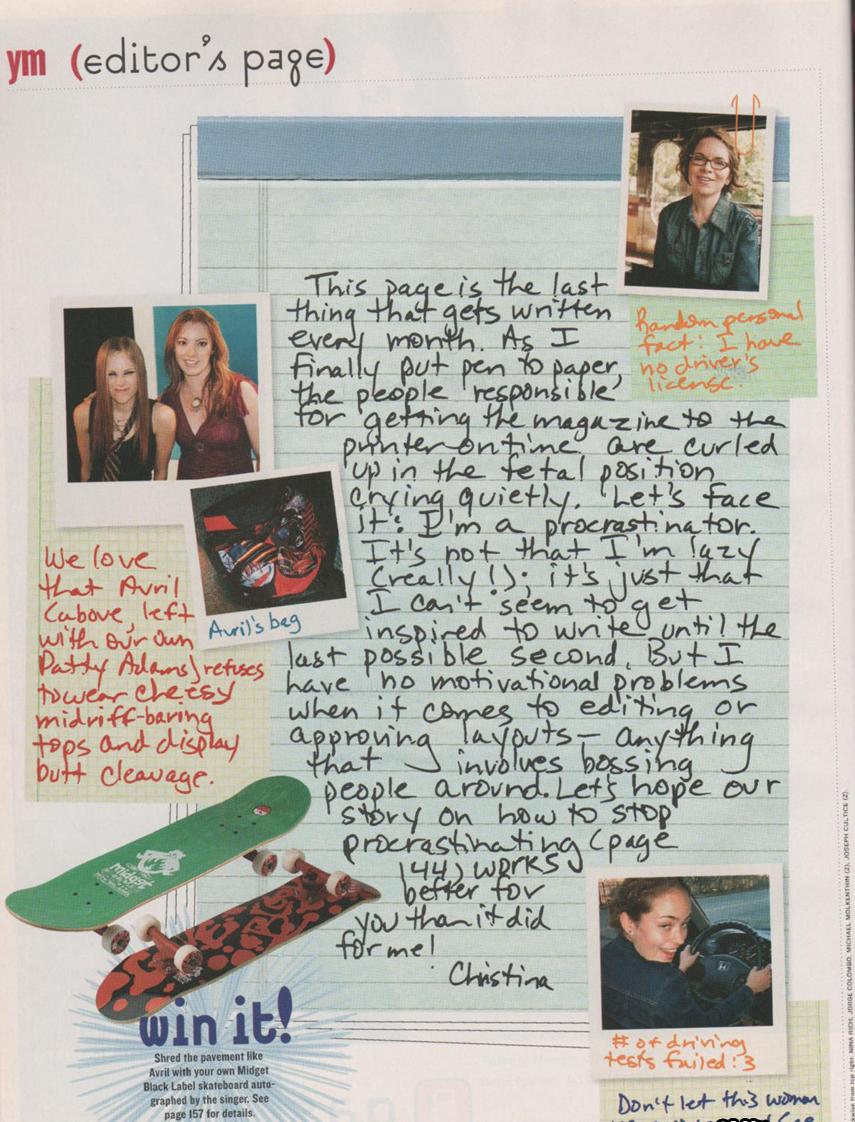 ym (editor's page)
This page is the last
thing that gets written
every month. As I
finally put pen to paper,
the people responsible
for getting the magazine to the
printer on time are curled
up in the fetal position
crying quietly. Let's face
it: I'm a procrastinator.
It's not that I'm lazy
(really!); it's just that
I can't seem to get
inspired to write until the
last possible second. But I
have no motivational problems
when it comes to editing or
approving layouts – anything
that involves bossing
people around. Let's hope our
story on how to stop
procrastinating (page
144) works
better for
you than it did
for me!
Christina
Random personal
fact: I have
no driver's
license.
We love
that Avril
(above, left
with our own
Patty Adams) refuses
to wear cheesy
midriff-baring
tops and display
butt cleavage.
Avril's bag
midget
win it!
Shred the pavement like
Avril with your own Midget
Black Label skateboard auto-
graphed by the singer. See
page 157 for details.
# of driving
tests failed: 3
Don't let this woman
kwise from top right: NINA RICH, JORGE COLOMBO, MICHAEL MOLKENTHIN (2), JOSEPH CULTICE (2).